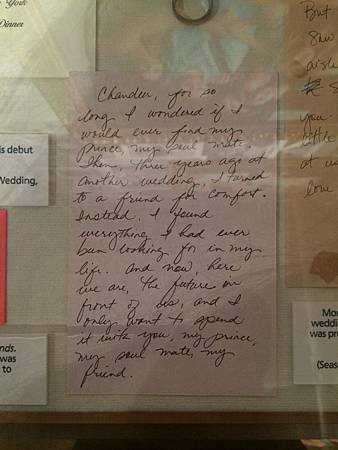 York
Dinner
Chandler, for so
long I wondered if I
would ever find my
prince, my soul mate.
Then, three years ago at
another wedding, I turned
to a friend for comfort.
Instead, I found
everything I had ever
been looking for in my
life. And now, here
we are, the future in
front of us, and I
only want to spend
it with you, my prince,
my soul mate, my
friend.
But
aisle
you
little
at us
love
is debut
Wedding,
nds.
was
to
Mo
weddin
was pr
(Seas